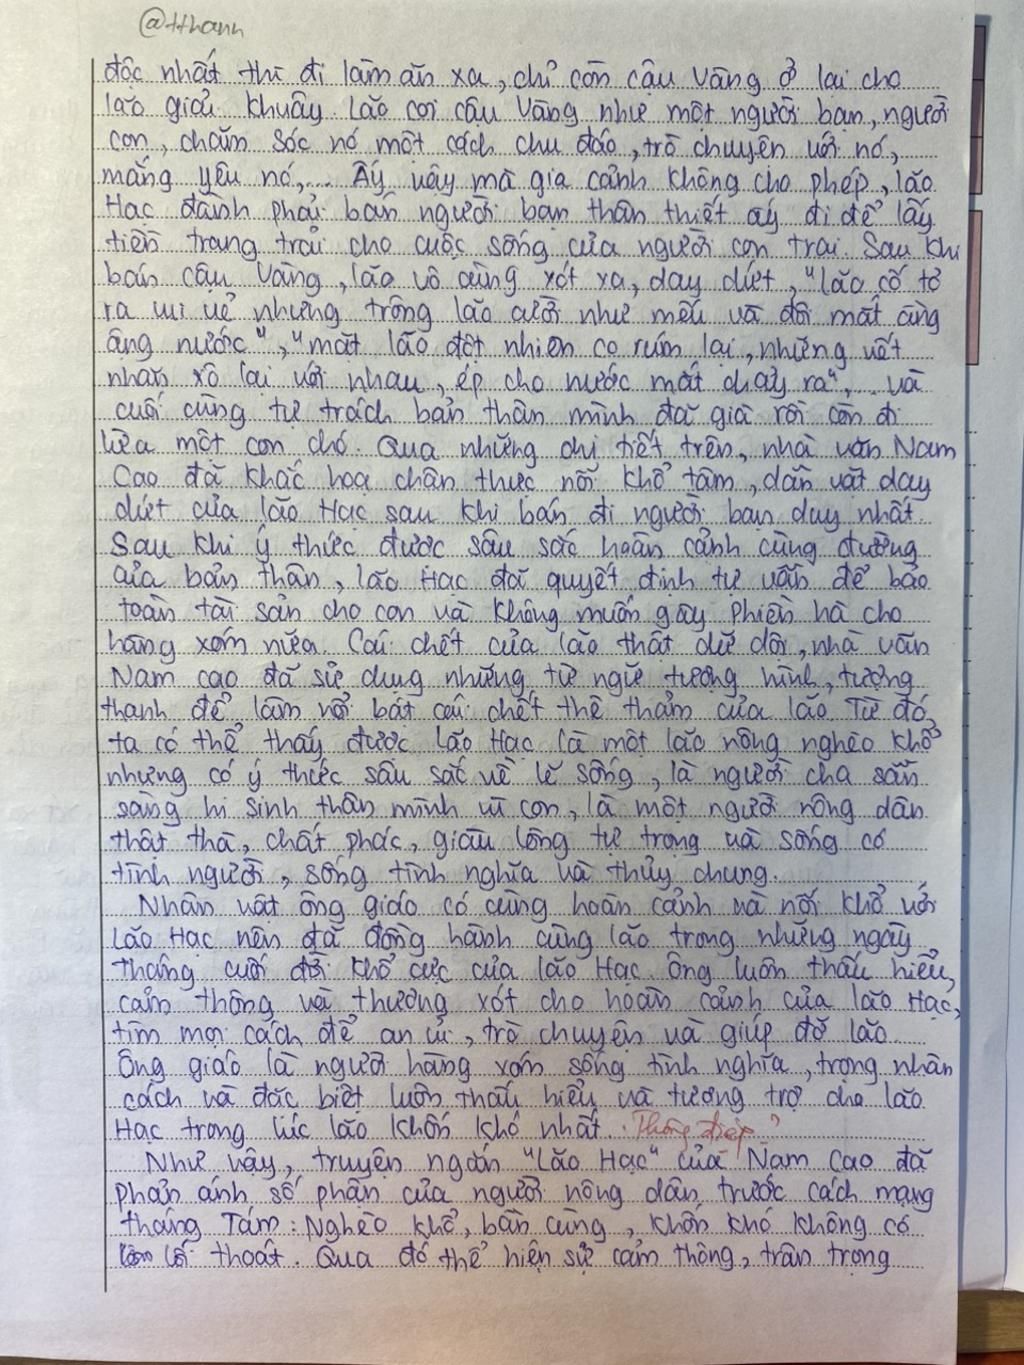 @tthanh
độc nhất thì đi làm ăn xa, chỉ còn cậu Vàng ở lại cho
lão giải khuây. Lão coi cậu Vàng như một người bạn, người
con, chăm sóc nó một cách chu đáo, trò chuyện với nó,
mắng yêu nó,... Ấy vậy mà gia cảnh không cho phép, lão
Hạc đành phải bán người bạn thân thiết ấy đi để lấy
tiền trang trải cho cuộc sống của người con trai. Sau khi
bán cậu Vàng, lão vô cùng xót xa, day dứt, "lão cố tỏ
ra vui vẻ nhưng trông lão cười như mếu và đôi mắt ầng
ậng nước", "mặt lão đột nhiên co rúm lại, những vết
nhăn xô lại với nhau, ép cho nước mắt chảy ra",... và
cuối cùng tự trách bản thân mình đã già rồi còn đi
lừa một con chó. Qua những chi tiết trên, nhà văn Nam
Cao đã khắc hoạ chân thực nỗi khổ tâm, dằn vặt day
dứt của lão Hạc sau khi bán đi người bạn duy nhất.
Sau khi ý thức được sâu sắc hoàn cảnh cùng đường
của bản thân, lão Hạc đã quyết định tự vẫn để bảo
toàn tài sản cho con và không muốn gây phiền hà cho
hàng xóm nữa. Cái chết của lão thật dữ dội, nhà văn
Nam Cao đã sử dụng những từ ngữ tượng hình, tượng
thanh để làm nổi bật cái chết thê thảm của lão. Từ đó,
ta có thể thấy được lão Hạc là một lão nông nghèo khổ
nhưng có ý thức sâu sắc về lẽ sống, là người cha sẵn
sàng hi sinh thân mình vì con, là một người nông dân
thật thà, chất phác, giàu lòng tự trọng và sống có
tình người, sống tình nghĩa và thủy chung.
Nhân vật ông giáo có cùng hoàn cảnh và nỗi khổ với
Lão Hạc nên đã đồng hành cùng lão trong những ngày
tháng cuối đời khổ cực của lão Hạc. Ông luôn thấu hiểu,
cảm thông và thương xót cho hoàn cảnh của lão Hạc,
tìm mọi cách để an ủi, trò chuyện và giúp đỡ lão.
Ông giáo là người hàng xóm sống tình nghĩa, trọng nhân
cách và đặc biệt luôn thấu hiểu và tương trợ cho lão
Hạc trong lúc lão khốn khó nhất. Thông điệp?
Như vậy, truyện ngắn "Lão Hạc" của Nam Cao đã
phản ánh số phận của người nông dân trước cách mạng
tháng Tám: Nghèo khổ, bần cùng, khốn khó không có
lối thoát. Qua đó thể hiện sự cảm thông, trân trọng